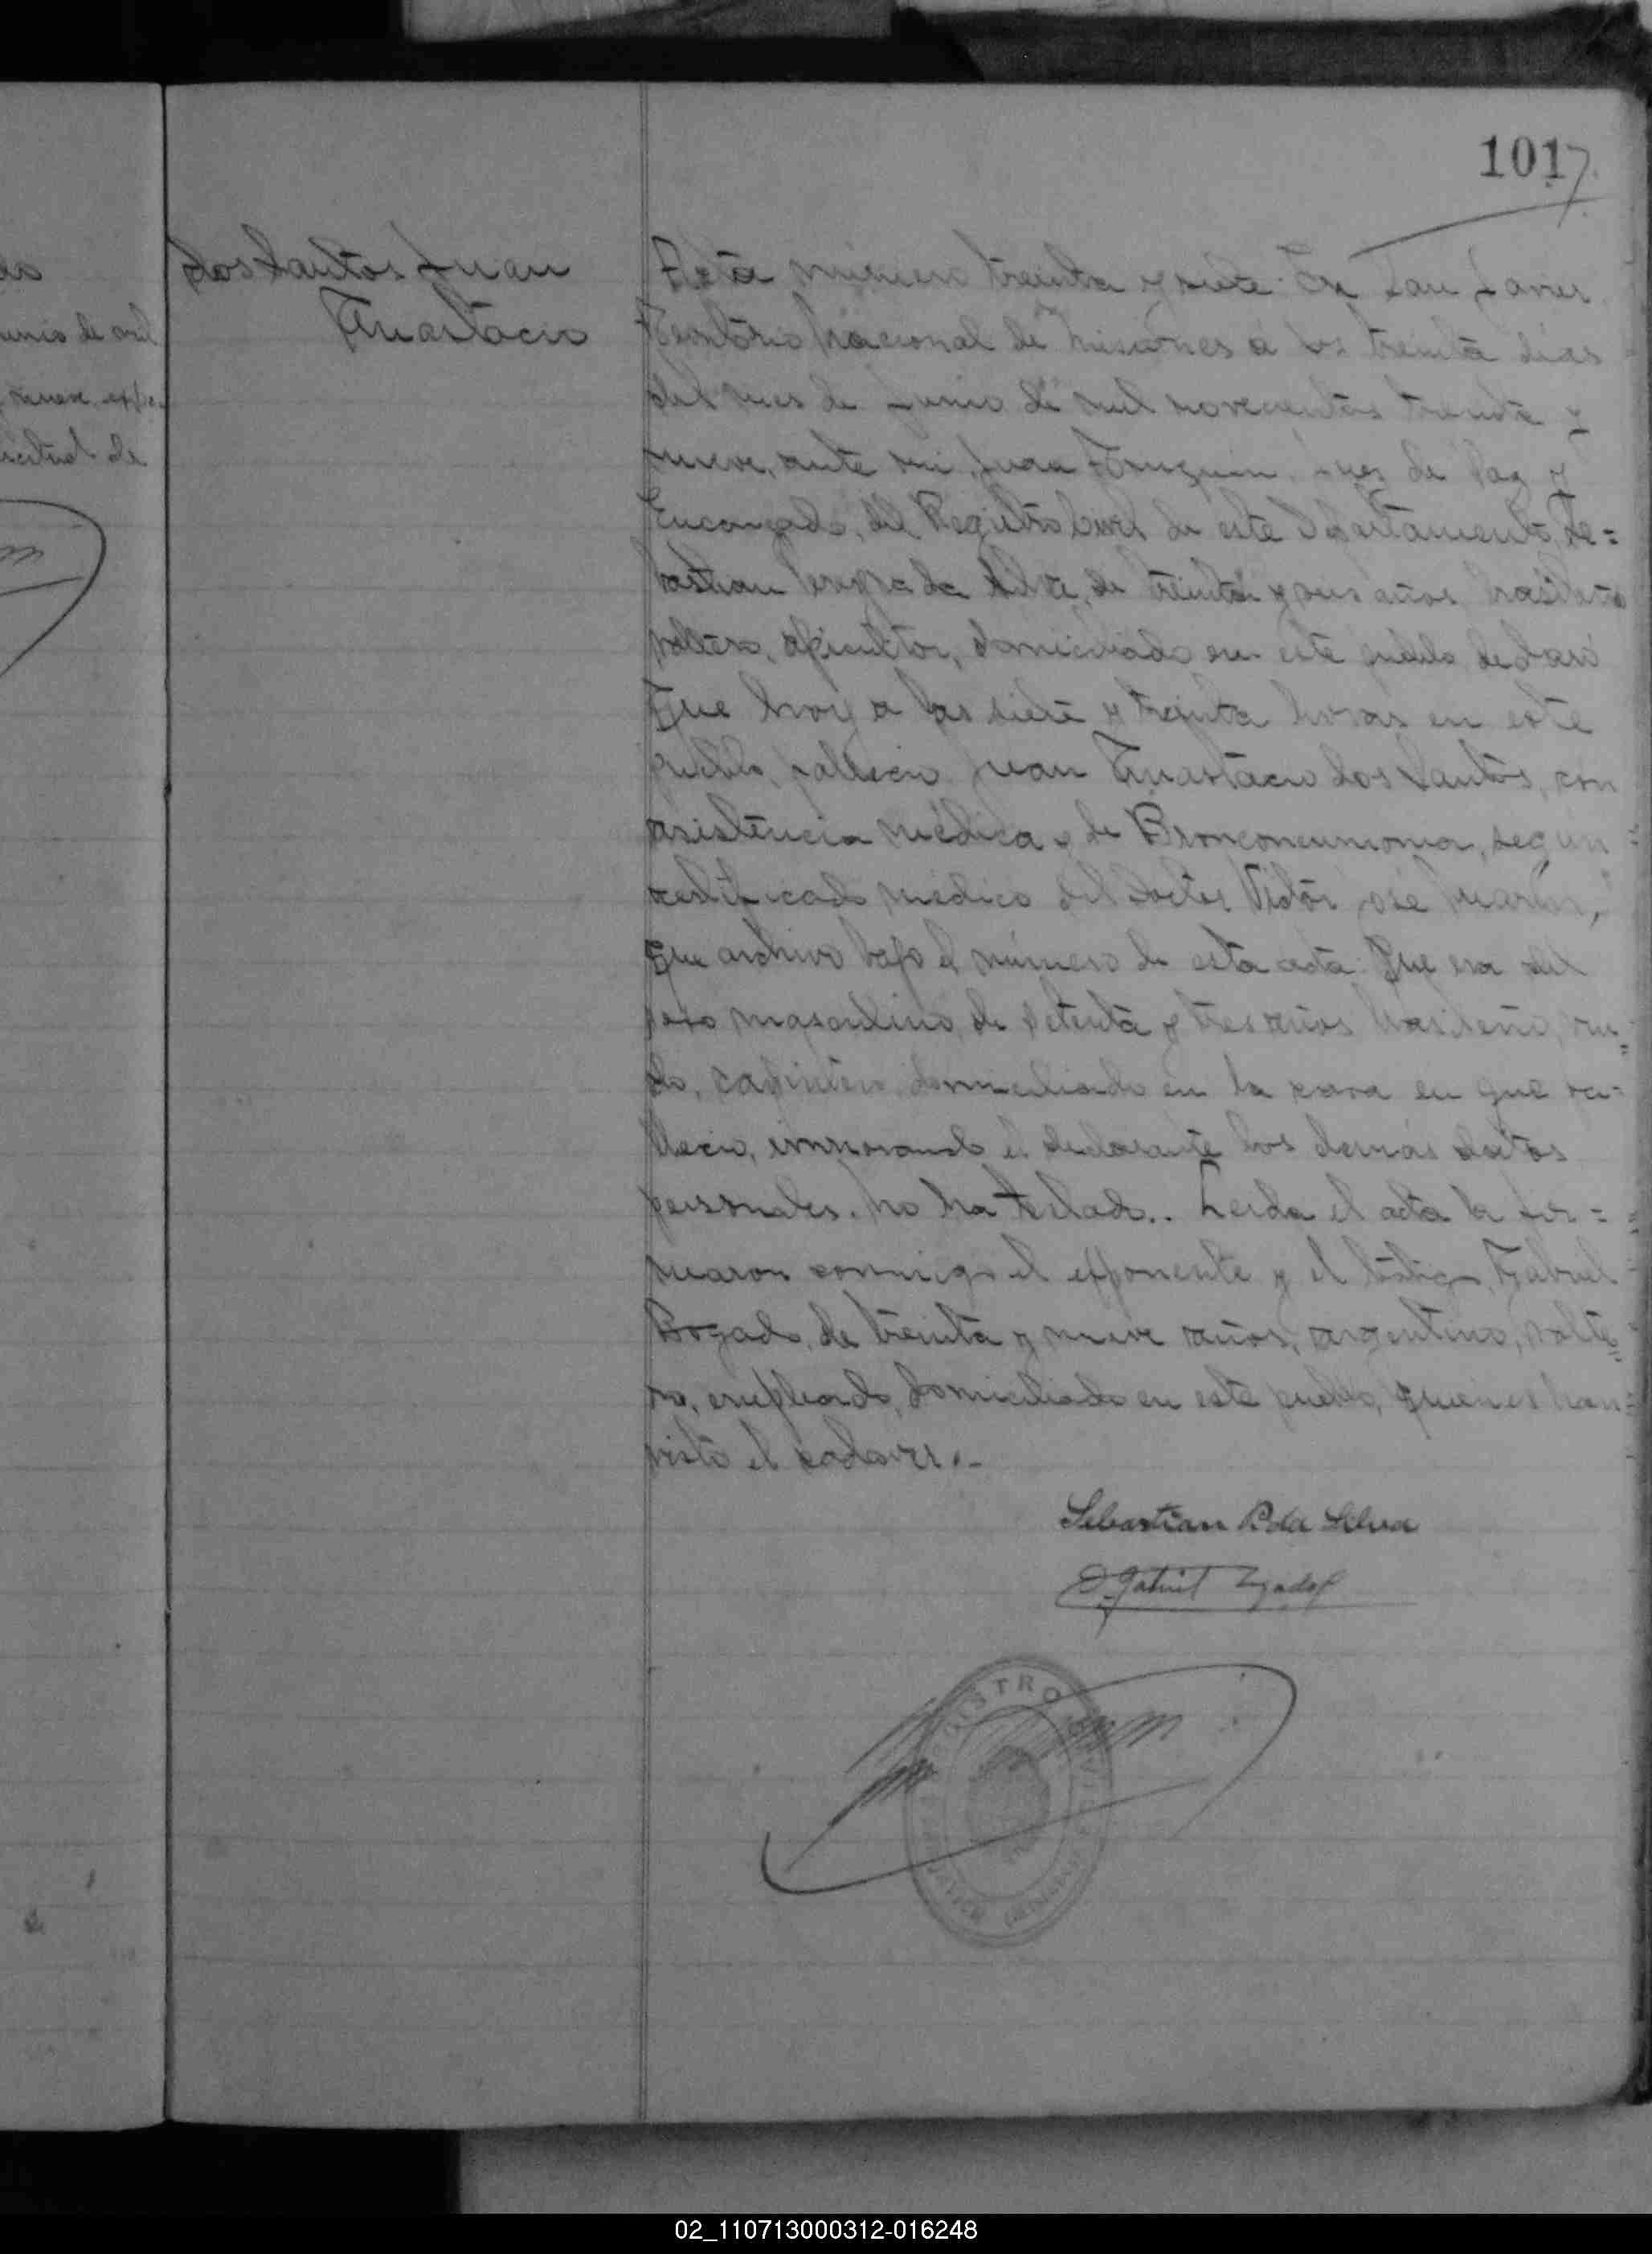 101
7
Dos Santos Juan
Anastacio
unio de mil
nueve, expe
icitud de
Acta número treinta y siete. En San Javier
Territorio Nacional de Misiones a los treinta dias
del mes de Junio de mil novecientos treinta y
nueve, ante mi, Juan Juez de Paz y
Encargado, del Registro Civil de este Departamento, Se=
bastian da Silva, de treinta y seis años, brasileño
soltero, apicultor, domiciliado en este pueblo declaró
Que hoy a las siete y treinta horas en este
pueblo, fallecio Juan Anastacio Dos Santos, con
asistencia médica y de Bronconeumonia, segun
certificado médico del doctor Victor José
que archivo bajo el número de esta acta. Que era del
sexo masculino, de setenta y tres años brasileño, viu=
do, carpintero domiciliado en la casa en que fa=
llecio, ignorando el declarante los demás datos
personales. No ha testado.. Leida el acta la fir=
maron conmigo el exponente y el testigo, Gabriel
Bogado, de treinta y nueve años, argentino, solte=
ro, empleado, domiciliado en este pueblo, quienes han
visto el cadaver.-
Sebastian P. da Silva
REGISTRO CIVIL
02_110713000312-016248